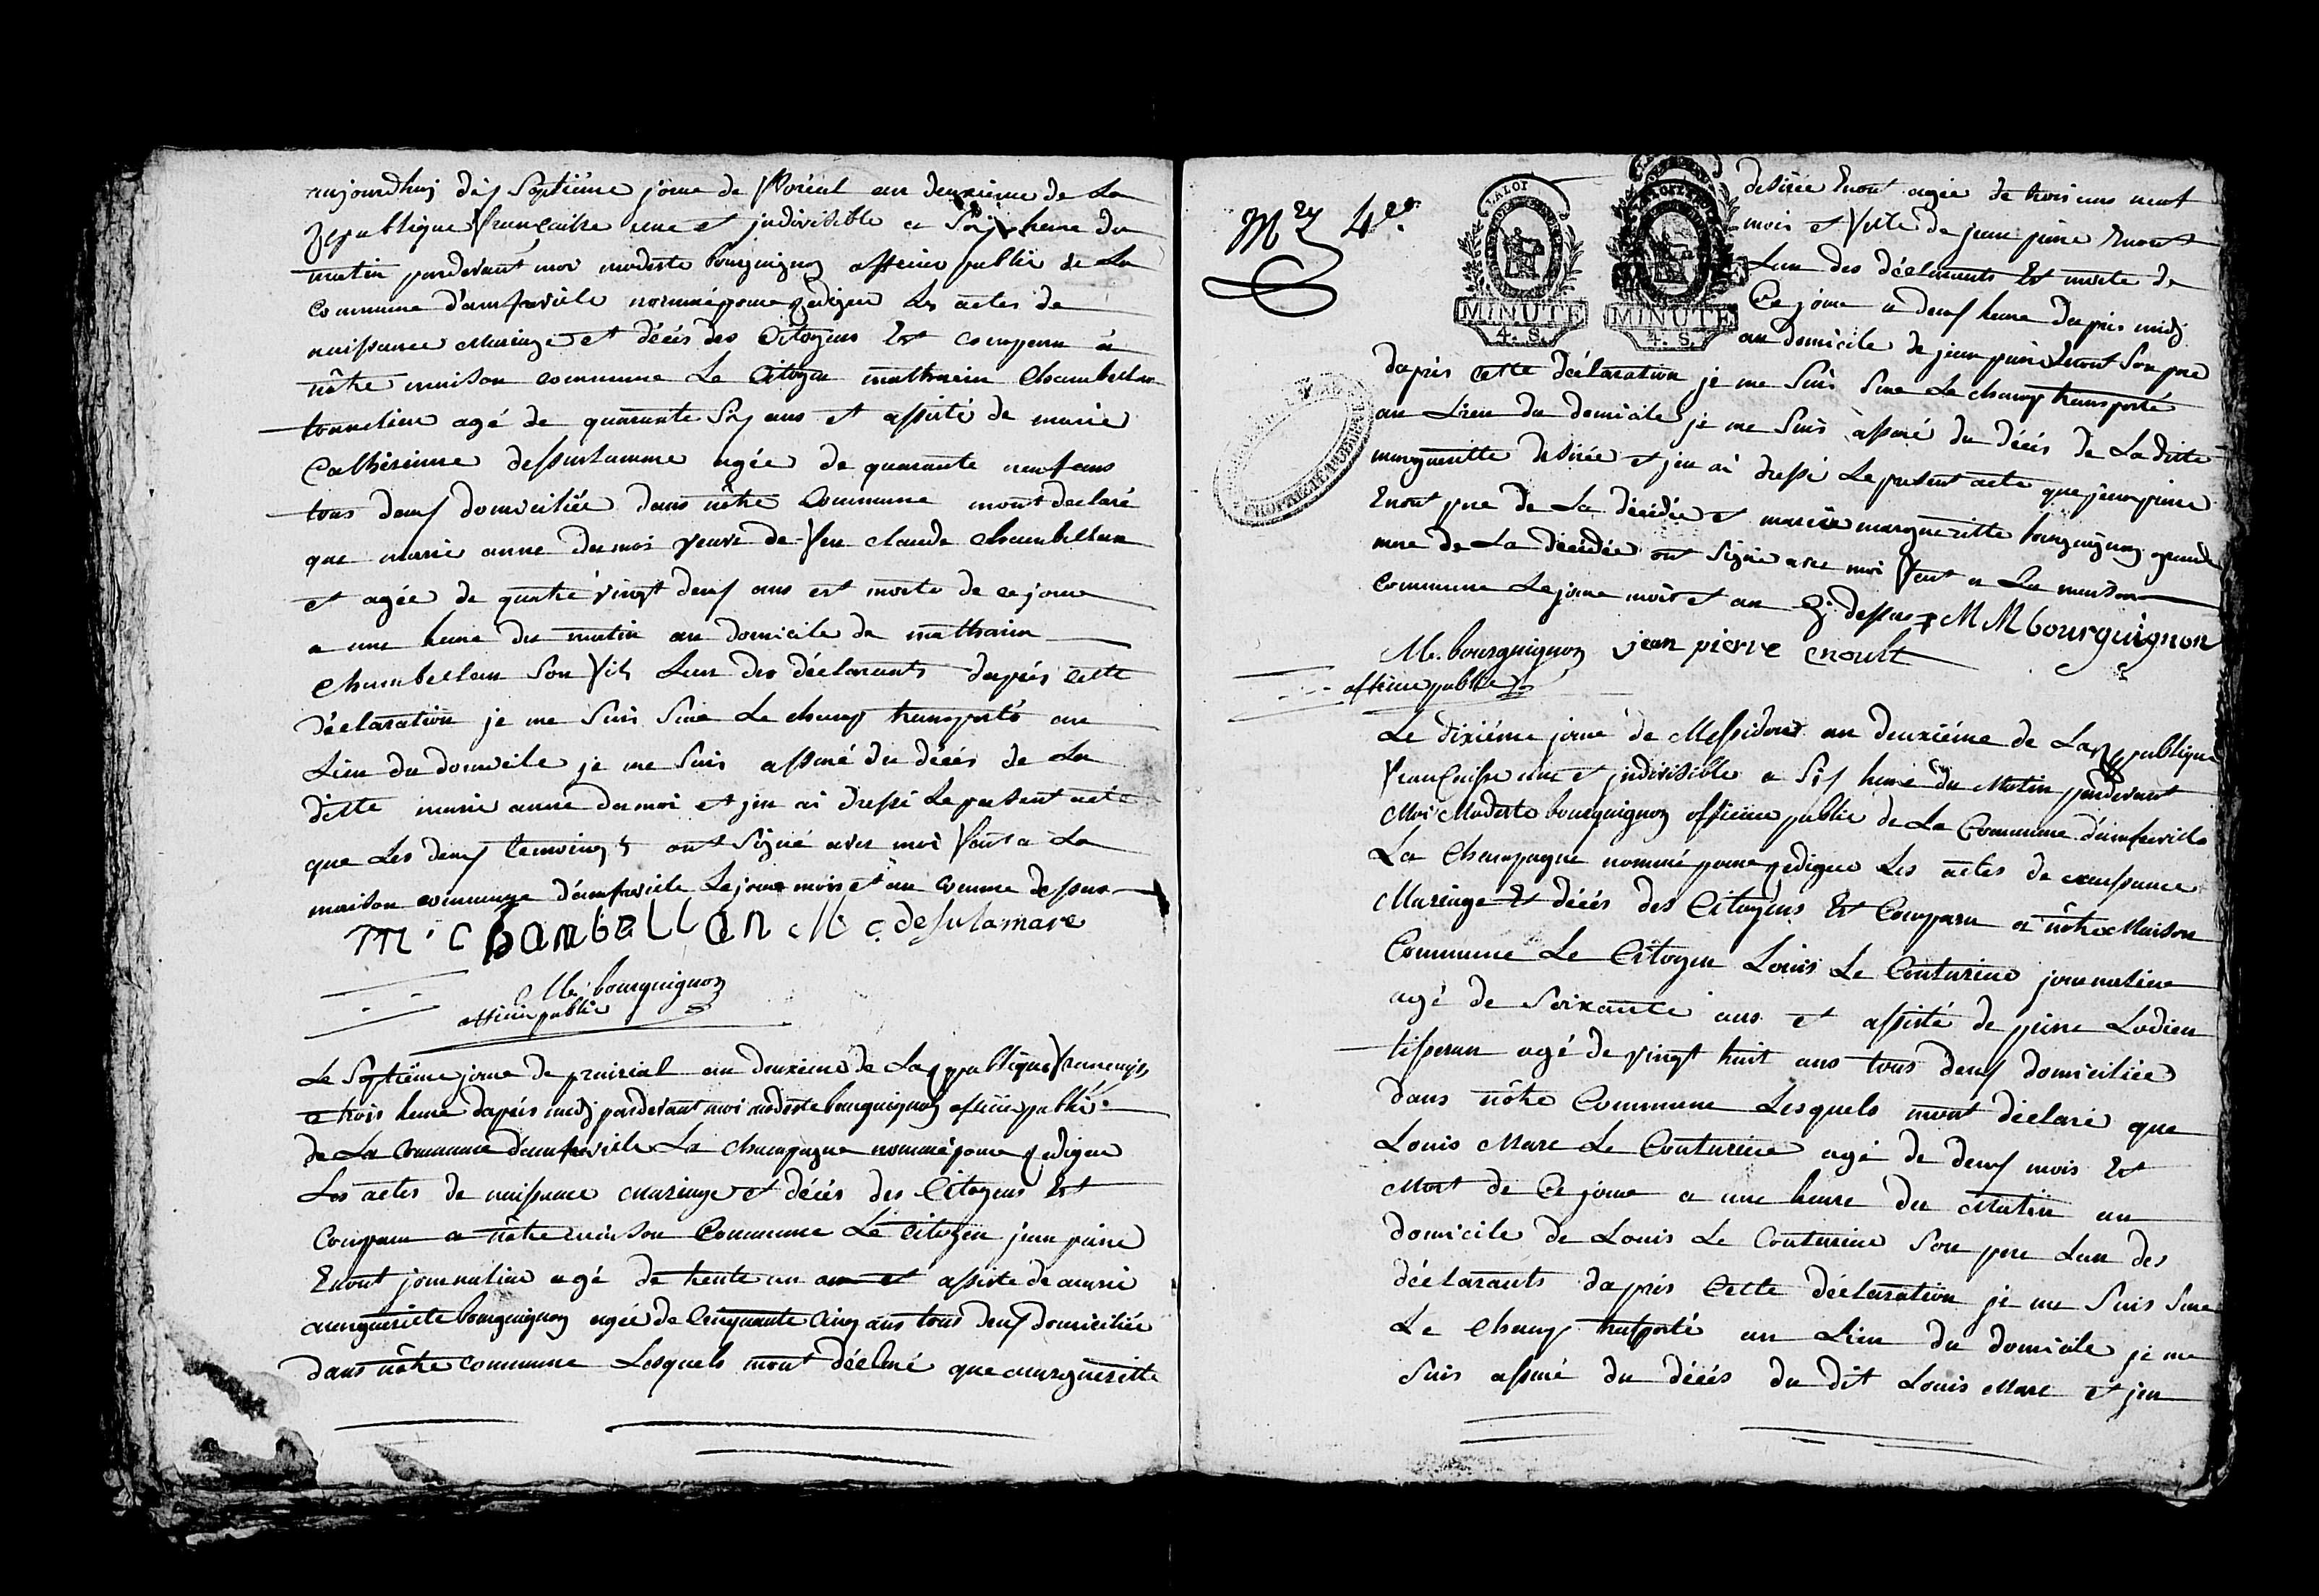 aujourdhuj dix Septiéme joure de floréal an deuxieme de La
Republique française une et jndivisible a Six heure du
matin pardevant moi modeste bourguignon officier public de La
commune d'amfreville nommé pour rediger Les actes de
naissance Mariage et décés des Citoyens Est comparu a
nôtre maison commune Le Citoyen mathurin Chambellan
tonnelier agé de quarante Six ans et assisté de marie
Catherinne agée de quarante neuf ans
tous deux domiciliée dans nôtre Commune mont declaré
que marie anne dumoi veuve de feu claude chambellan
et agée de quatre vingt deux ans est morte de ce joure
a une heure du matin au domicile de mathurin
Chambellan Son fils Lun des déclarants daprés cette
déclaration je me Suis Sure Le champ transporté au
Lieu du domicile je me Suis assuré du décés de La
ditte marie anne dumoi et jen ai dressé Le present acte
que Les deux temoings ont Signé avec moi fait a La
maison commune d'amfreville Le joure mois et an comme dessus
m. chambellan M c. desulamare
M. bourguignon
officier public
Le Septiéme joure de prairial an deuxieme de La republique francaise
a trois heure daprés midj pardevant moi modeste bourguignon officier public
de La Commune damfreville La champagne nommé pour rediger
Les actes de naissance mariage et décés des Citoyens Est
Comparu a nôtre maison Commune Le Citoyen jean piere
Enout journalier agé de trente un an et assisté de marie
marguerïtte bourguignon agée de Cinquante Cinq ans tous deux domiciliée
dans nôtre commune Lesquels mont décláré que marguerïtte
M 27 4e.
LA LOI
MINUTE
4. S.
MINUTE
4. S.
desirée Enout agée de trois ans neuf
mois et fille de jean piere Enout
Lun des déclarants Est morte de
Ce joure a deux heure daprés midj
au domicile de jean piere Enout Son pere
daprés cette déclaration je me Suis Sure Le champ transporté
au Lieu du domicile je me Suis assuré du décés de La ditte
marguerïtte desirée et jen ai dressé Le present acte que jean piere
Enout pere de La décédée et marie marguerïtte bourguignon grande
mere de La décédée ont Signé avec moi fait a La maison
commune Le joure mois et an Ci dessus M M bourguignon
M. bourguignon jean pierre enoult
officier public
Le dixiéme joure de Messidore an deuxiéme de La Republique
française une et jndivisible a Six heure du Matin pardevant
Moi Modeste bourguignon officier public de La Commune d'amfreville
La Champagne nommé pour rediger Les actes de naissance
Mariage Et décés des Citoyens Est Comparu a nôtre Maison
Commune Le Citoyen Louis Le Couturier journalier
agé de Soixante ans et assisté de piere Lodieu
tisseran agé de vingt huit ans tous deux domiciliée
dans nôtre Commune Lesquels mont déclaré que
Louis Marc Le Couturier agé de deux mois Est
Mort de Ce joure a une heure du Matin au
domicile de Louis Le Couturier Son pere Lun des
déclarants daprés Cette déclaration je me Suis Sure
Le Champ trasporté au Lieu du domicile je me
Suis assuré du décés du dit Louis Marc et jen